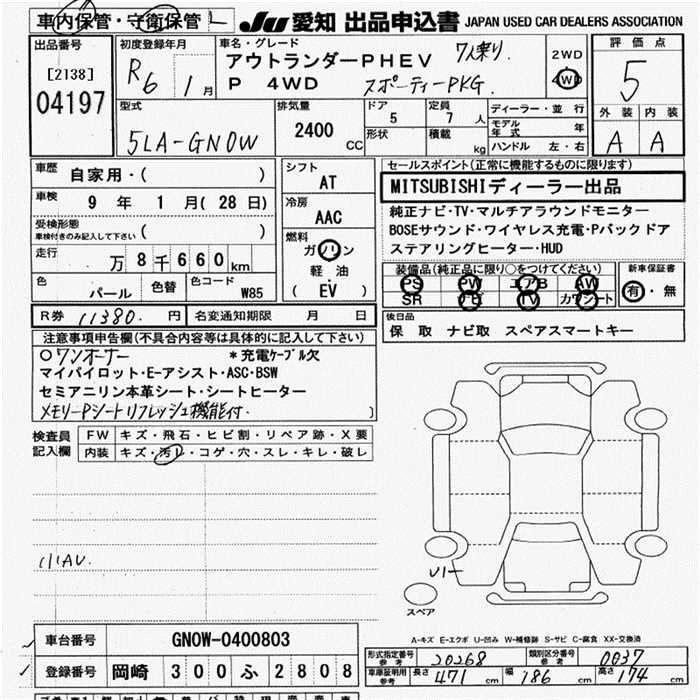 車内保管・守衛保管
JU 愛知 出品申込書 JAPAN USED CAR DEALERS ASSOCIATION
出品番号
[2138]
04197
初度登録年月
R6 1月
車名・グレード
アウトランダーPHEV 7人乗り
P 4WD スポーティーPKG.
2WD
4WD
評価点
5
外装 内装
A A
型式
5LA-GN0W
排気量
2400 CC
ドア
5
定員
7 人
形状
積載 kg
ディーラー・並行
モデル年式 年
ハンドル 左・右
車歴
自家用・( )
車検
9 年 1 月( 28 日)
受検形態
車検付きのみ記入して下さい ( )
走行
万 8千660 km
色
パール
色替
色コード
W85
シフト
AT
冷房
AAC
燃料
ガソリン
軽油
( EV )
セールスポイント(正常に機能するものに限ります)
MITSUBISHIディーラー出品
純正ナビ・TV・マルチアラウンドモニター
BOSEサウンド・ワイヤレス充電・Pバックドア
ステアリングヒーター・HUD
装備品(純正品に限り○をつけてください)
PS PW エアB AW
SR ナビ TV カワシート
新車保証書
有・無
R券 11380. 円
名変通知期限 月 日
後日品
保 取 ナビ取 スペアスマートキー
注意事項申告欄(不具合内容等は具体的に記入して下さい)
○ワンオーナー *充電ケーブル欠
マイパイロット・E-アシスト・ASC・BSW
セミアニリン本革シート・シートヒーター
メモリーPシート リフレッシュ機能付. )
検査員
記入欄
FW キズ・飛石・ヒビ割・リペア跡・X要
内装 キズ・汚レ・コゲ・穴・スレ・キレ・破レ
スペア
A-キズ E-エクボ U-凹み W-補修跡 S-サビ C-腐食 XX-交換済
車台番号 GN0W-0400803
登録番号 岡崎 300 ふ 2808
形式指定番号
参考 20268
類別区分番号
参考 0037
車庫証明用
参考
長さ 471 cm 幅 186 cm 高さ 174 cm